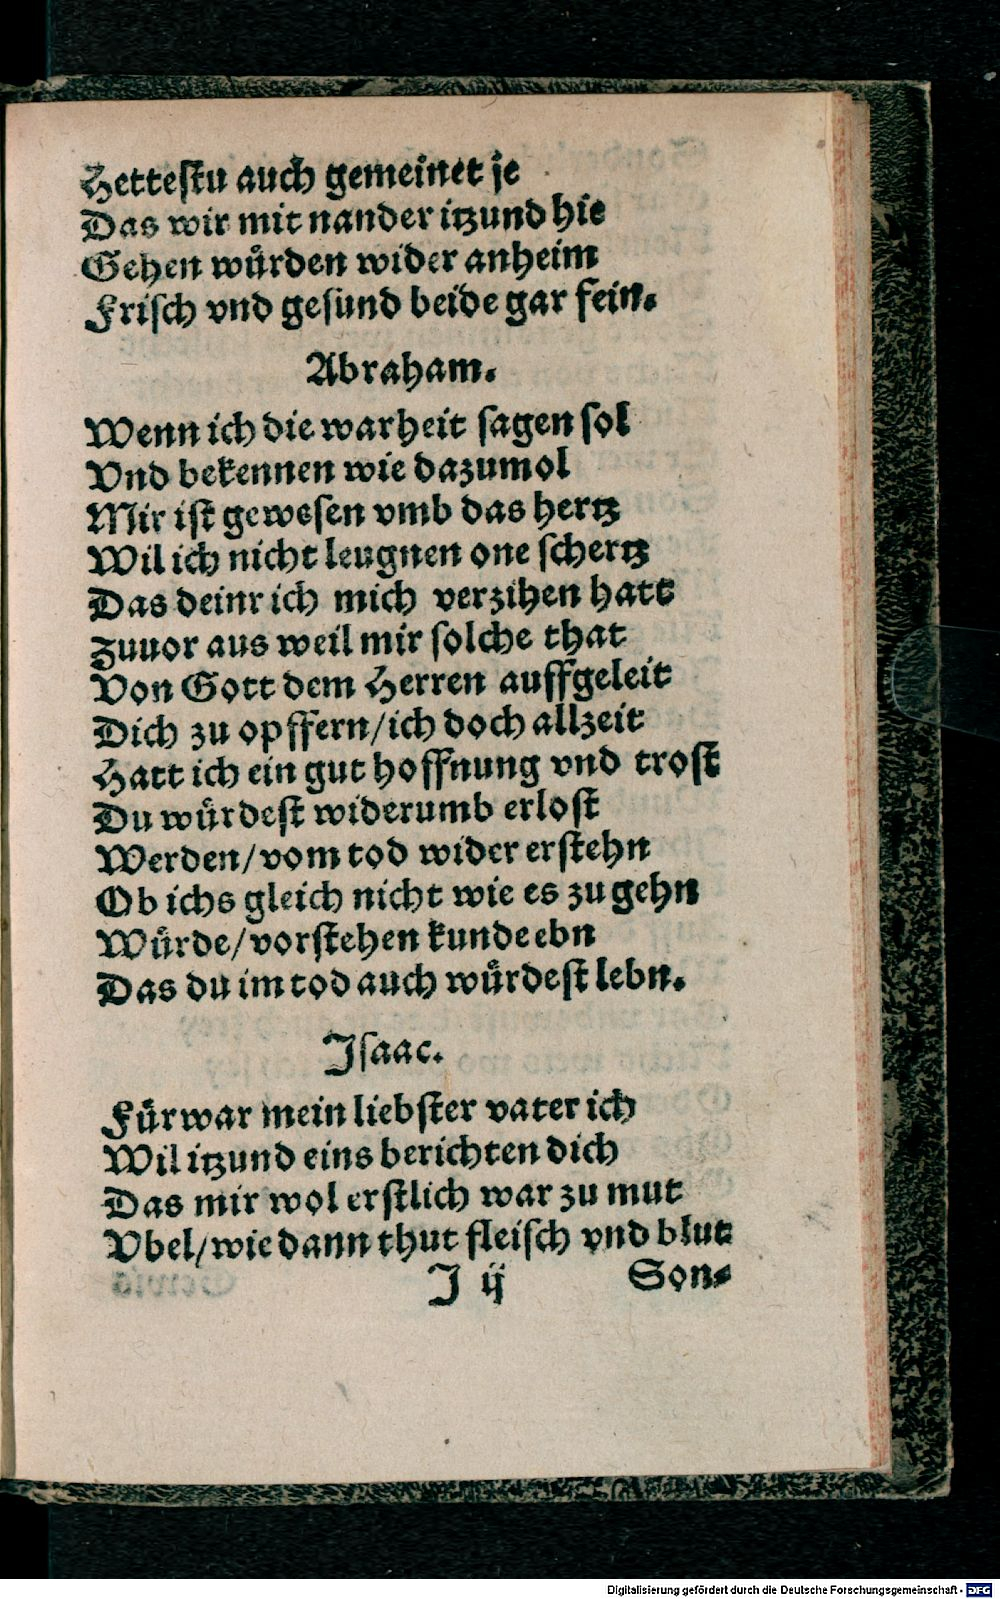 Hettestu auch gemeinet je
Das wir mit nander itzund hie
Gehen wuͤrden wider anheim
Frisch vnd gesund beide gar fein.
Abraham.
Wenn ich die warheit sagen sol
Vnd bekennen wie dazumol
Mir ist gewesen vmb das hertz
Wil ich nicht leugnen one schertz
Das deinr ich mich verzihen hatt
Zuuor aus weil mir solche that
Von Gott dem Herren auffgeleit
Dich zu opffern/ich doch allzeit
Hatt ich ein gut hoffnung vnd trost
Du wuͤrdest widerumb erlost
Werden/vom tod wider erstehn
Ob ichs gleich nicht wie es zu gehn
Wuͤrde/vorstehen kunde ebn
Das du im tod auch wuͤrdest lebn.
Isaac.
Fuͤrwar mein liebster vater ich
Wil itzund eins berichten dich
Das mir wol erstlich war zu mut
Vbel/wie dann thut fleisch vnd blut
I ij Son-
Digitalisierung gefördert durch die Deutsche Forschungsgemeinschaft - DFG